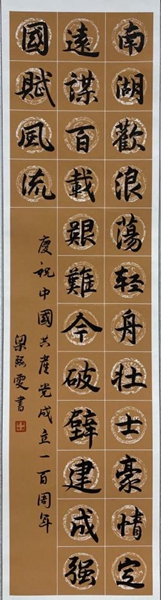 南湖歡浪蕩轻舟壮士豪情定
遠謀百載艱難今破壁建成强
國賦風流
慶祝中國共産党成立一百周年
梁
書